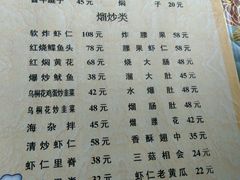 45元 子 20元
烟炒类
软炸虾仁 108元 炸腰果 58元
红烧鲤鱼头 78元 腰果虾仁 68元
红焖黄花 48元 烧大肠 48元
爆炒鱿鱼 38元 溜大肚 45元
乌桐花鸡蛋炒韭菜 48元 溜肥肠 48元
乌桐花炒韭菜 42元 溜肠肚 48元
海杂拌 45元 爆腰花 42元
清炒虾仁 58元 香酥翅中 35元
虾仁里脊 38元 三菇相会 24元
里脊 38元 虾仁老黄瓜 22元